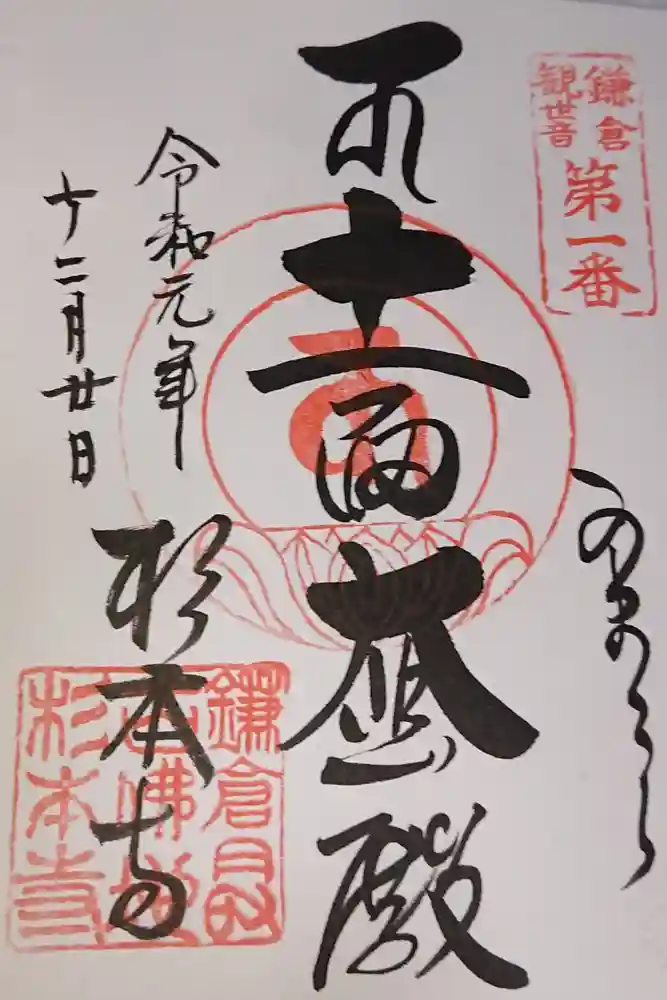 鎌倉
観世音
第一番
かまくら
十一面大悲殿
令和元年
十二月廿日
杉本寺
鎌倉最
古佛地
杉本寺